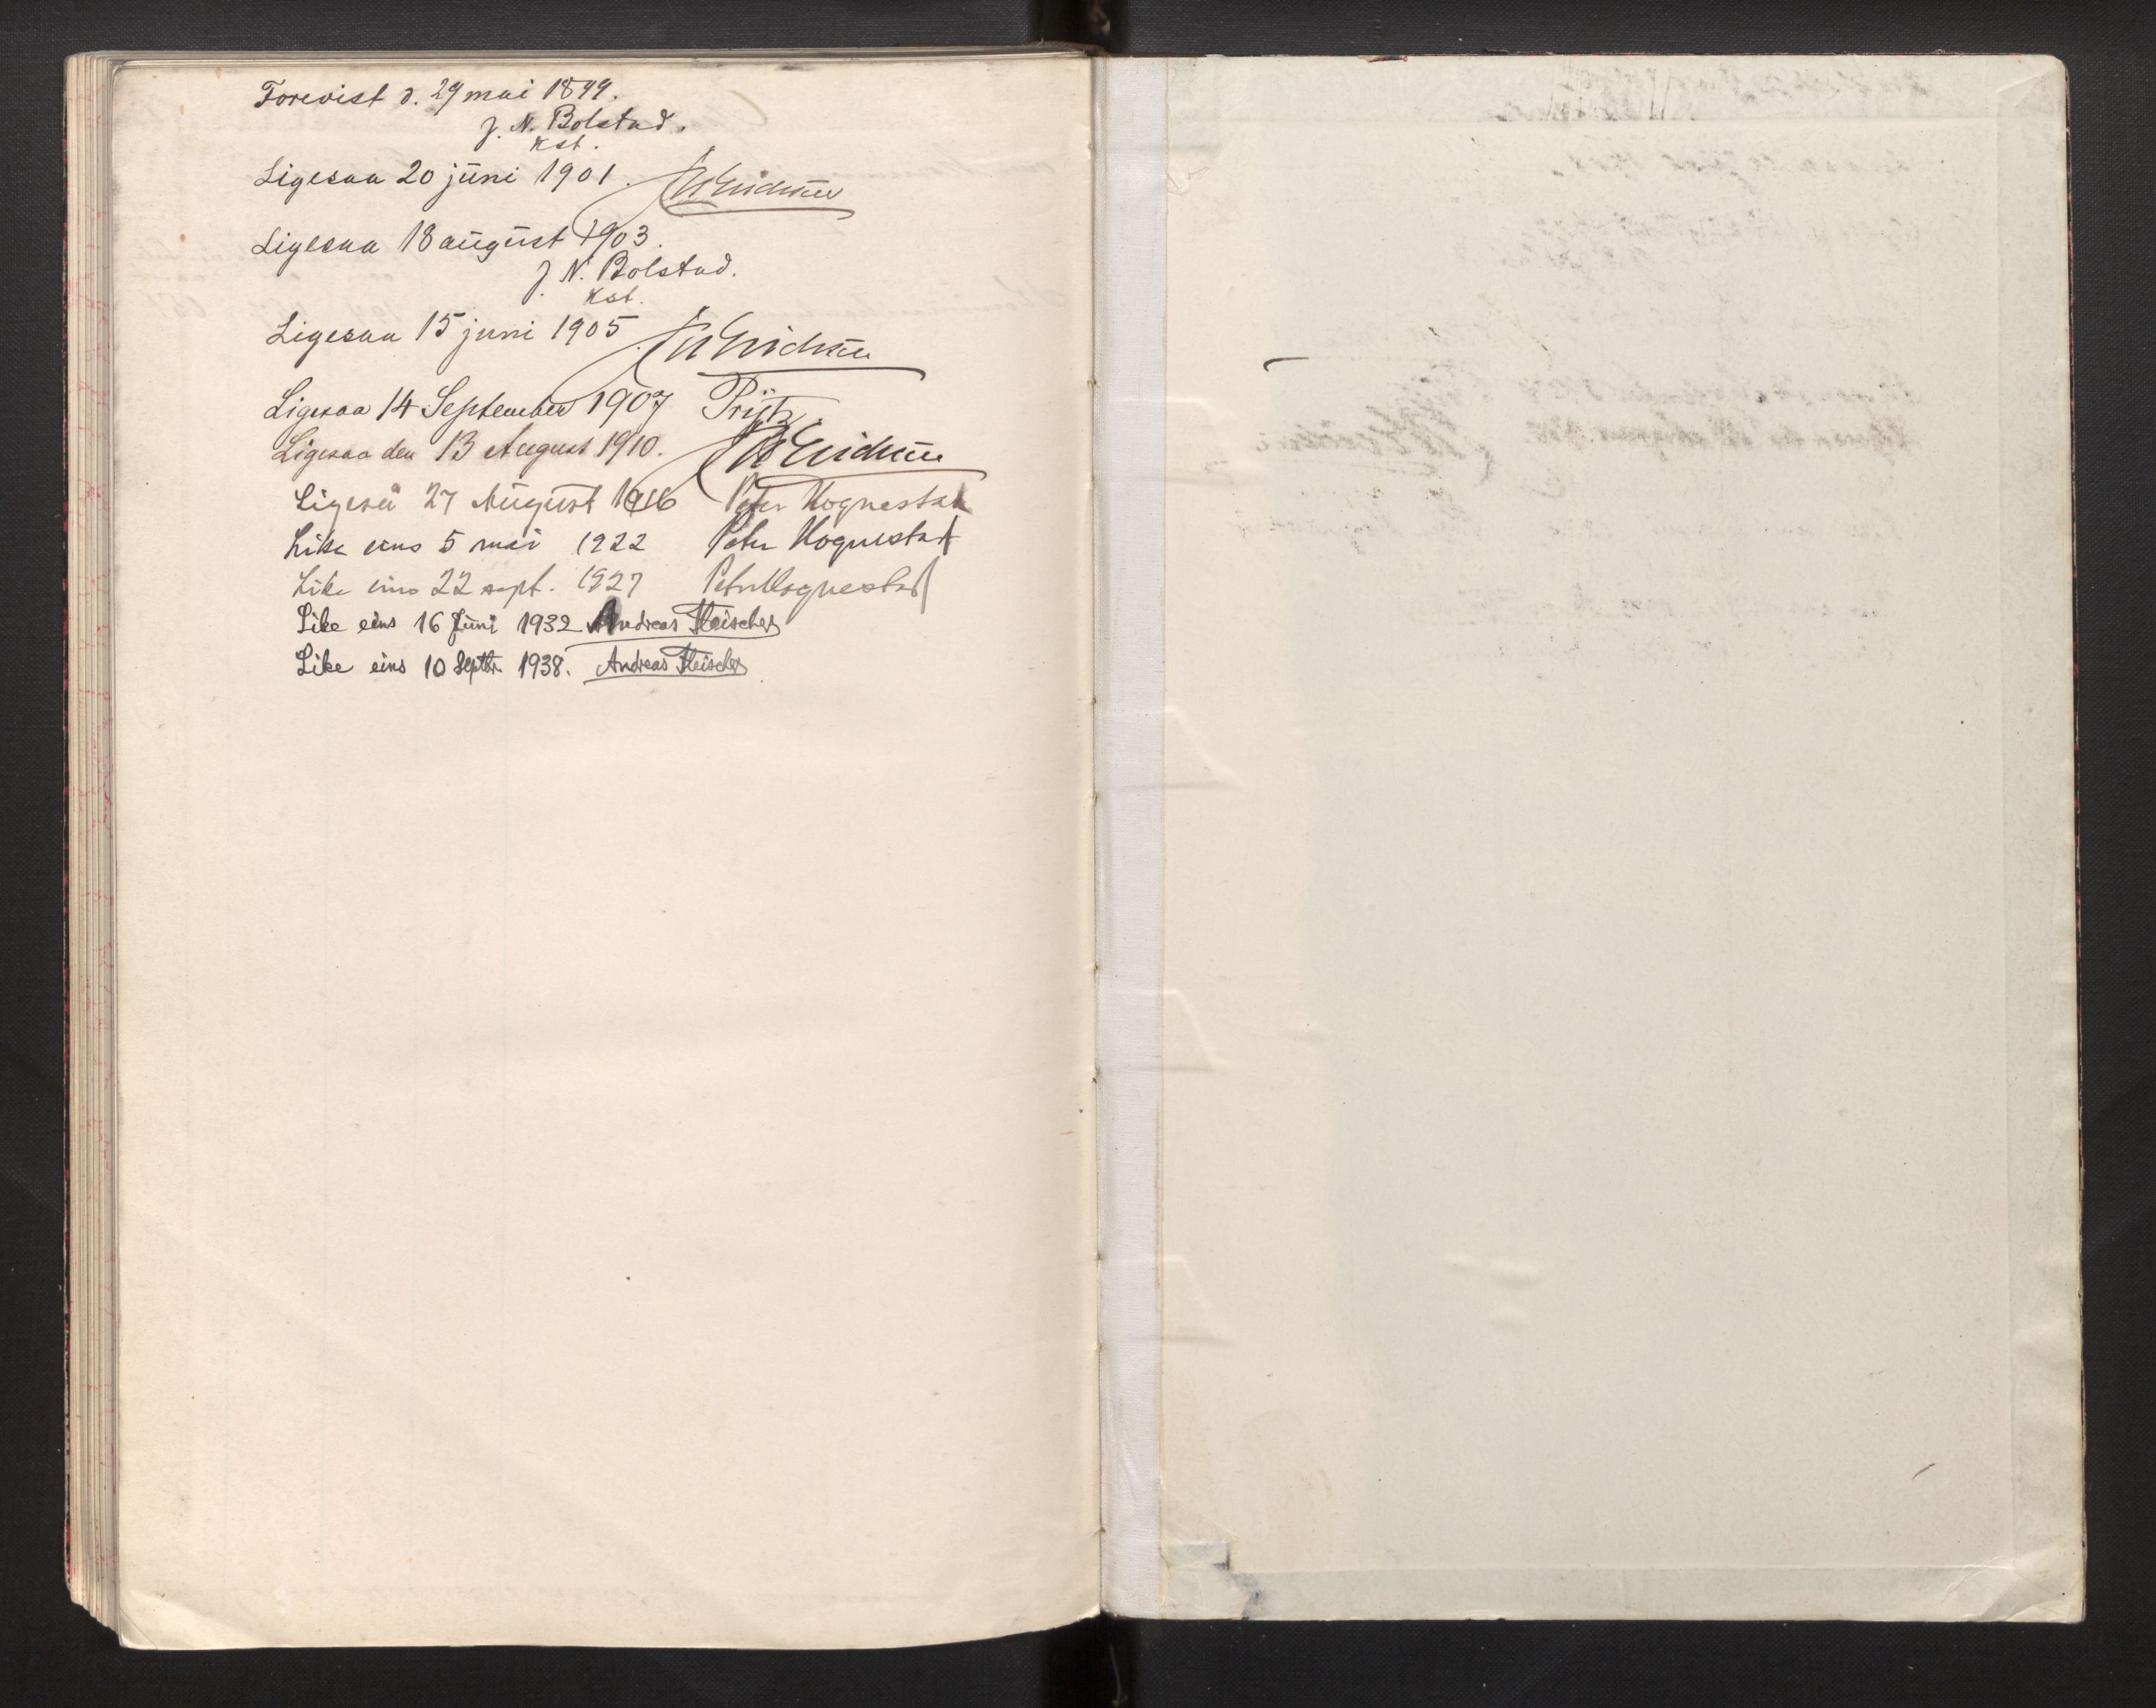 Forevist d. 29 mai 1899.
J. N. Bolstad.
Kst.
Ligesaa 20 juni 1901.
Ligesaa 18 august 1903.
J. N. Bolstad.
Kst.
Ligesaa 15 juni 1905
Ligesaa 14 September 1907
Ligesaa den 13 August 1910.
Ligeså 27 August 1916 Peter Hognestad
Like eins 5 mai 1922 Peter Hognestad
Like eins 22 sept. 1927 Peter Hognestad
Like eins 16 Juni 1932 Andreas Fleischer
Like eins 10 Septbr. 1938. Andreas Fleischer